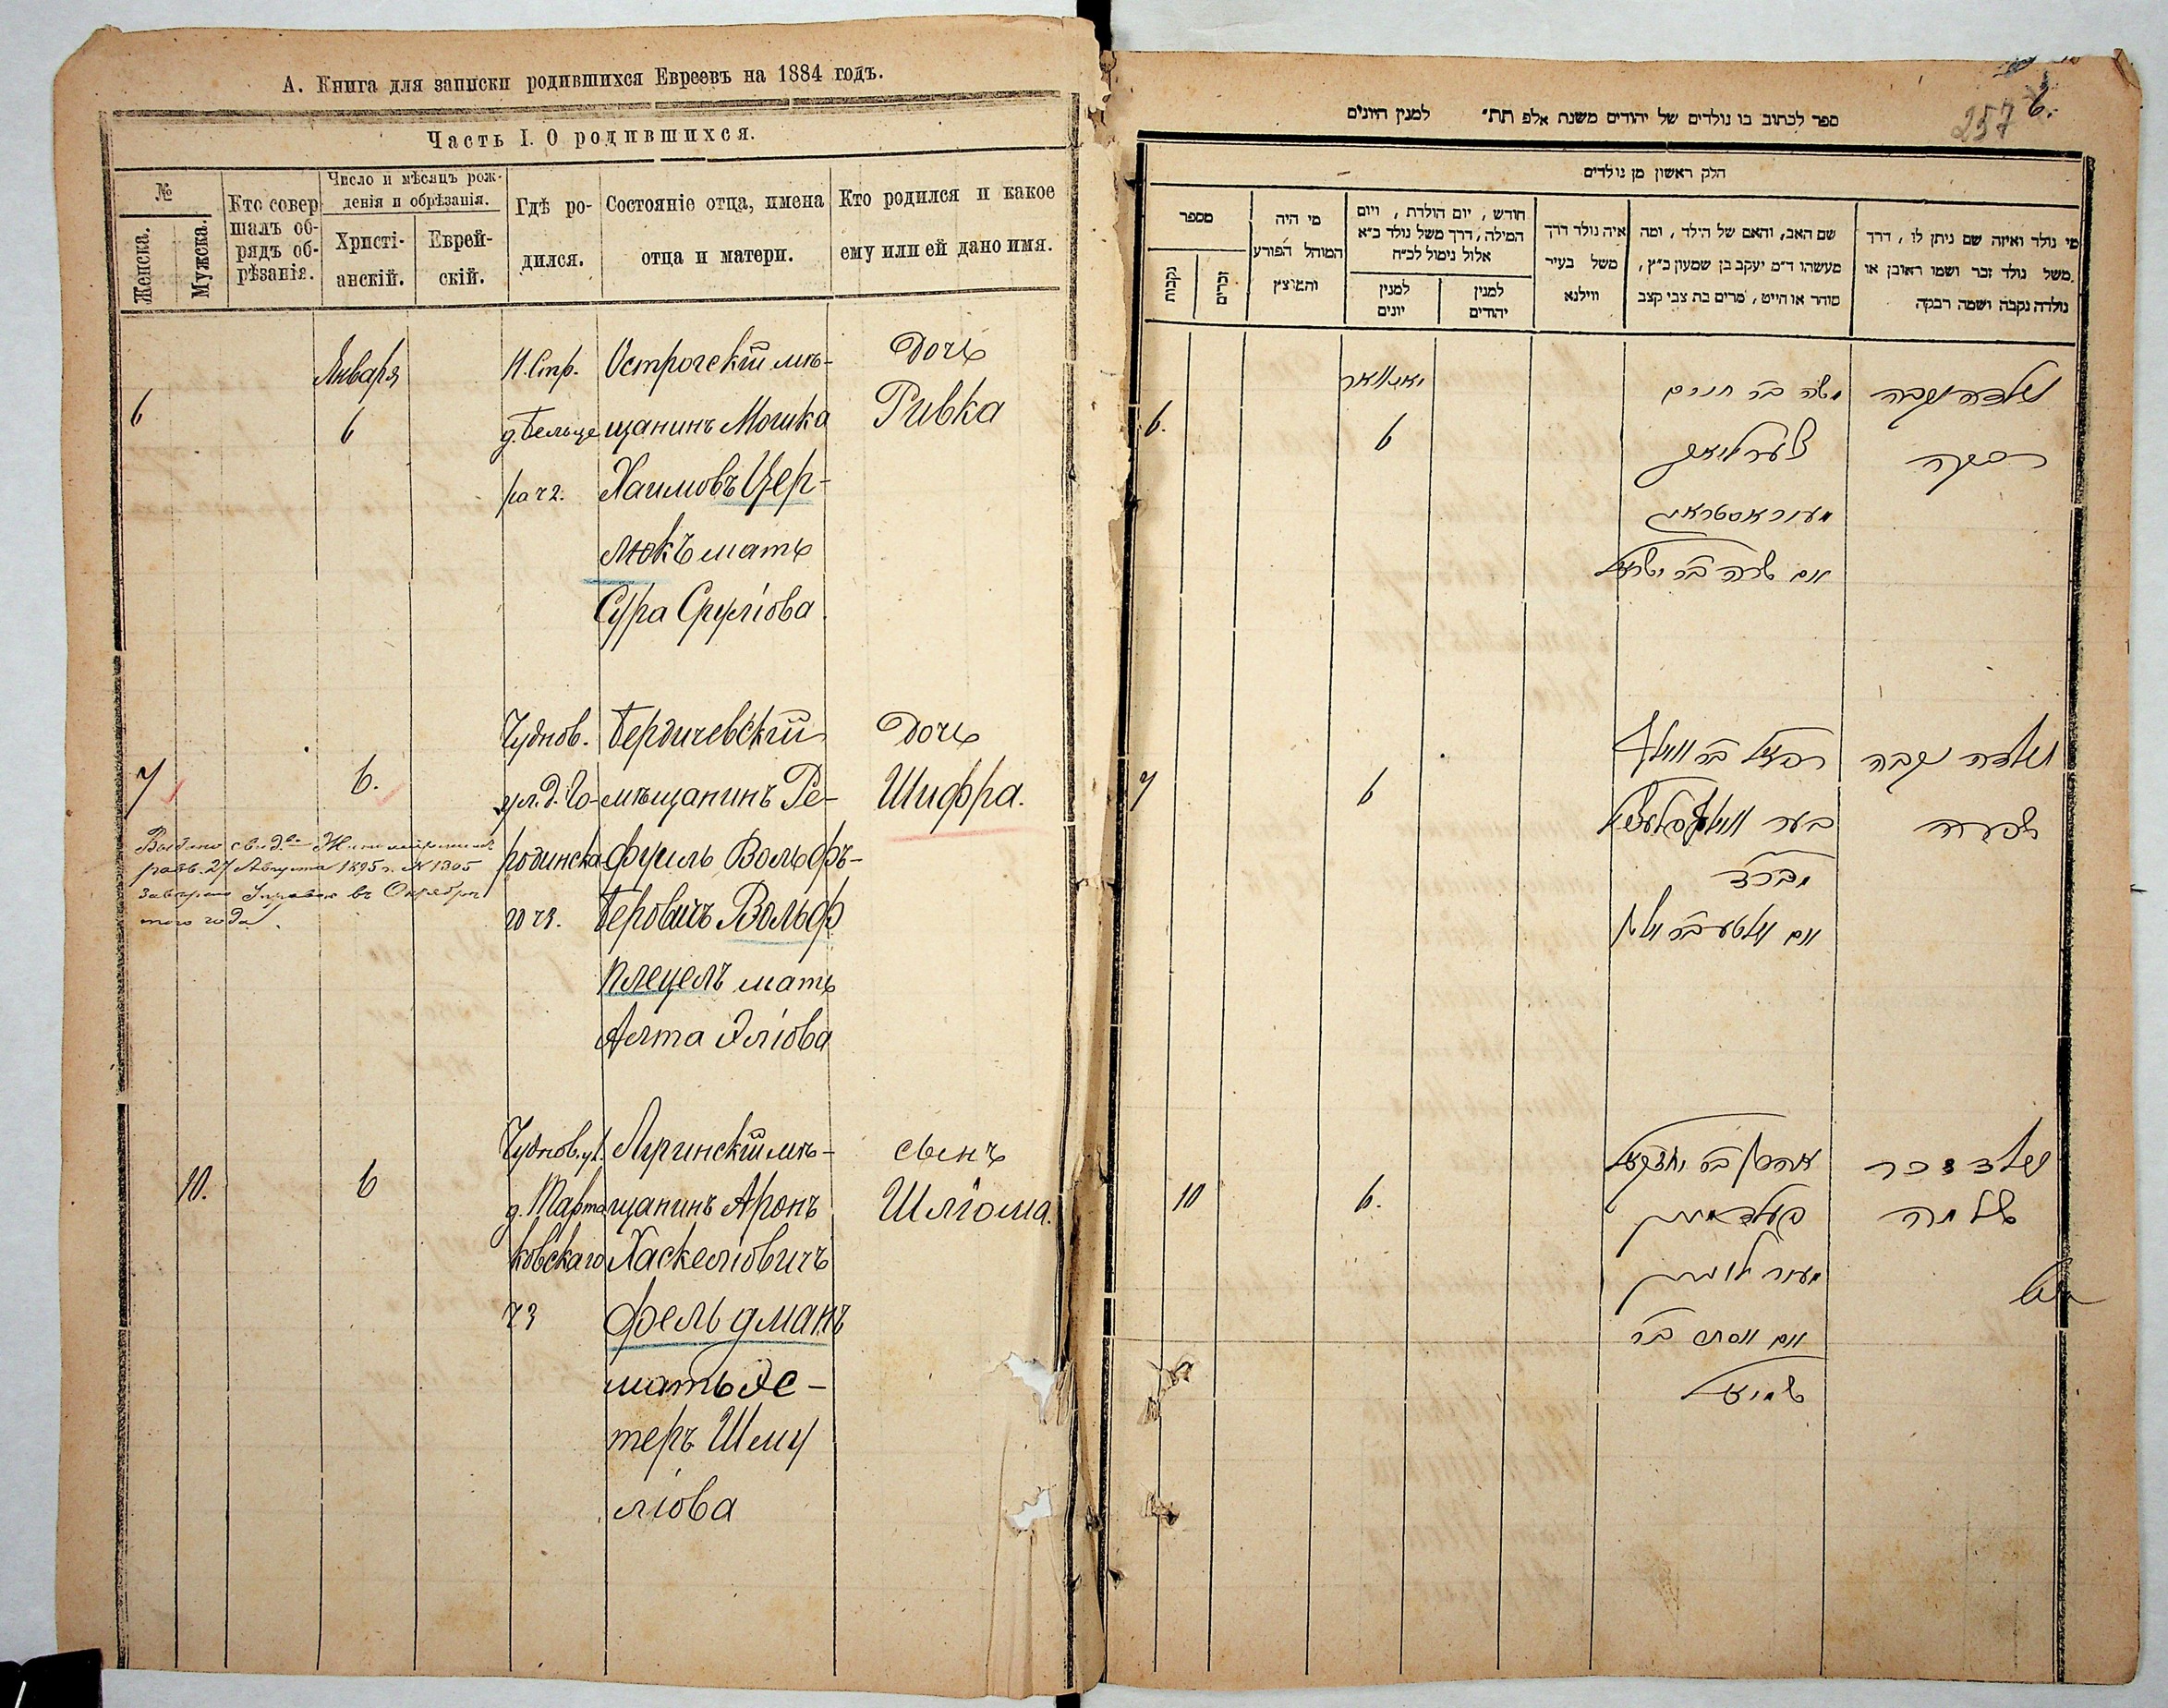 А. Книга для записки родившихся Евреевъ на 1884 годъ.
Часть I. О родившихся.
№
Женска.
Мужска.
Кто совер-
шалъ об-
рядъ об-
рѣзанія.
Число и мѣсяцъ рож-
денія и обрѣзанія.
Христі-
анскій.
Еврей-
скій.
Гдѣ ро-
дился.
Состояніе отца, имена
отца и матери.
Кто родился и какое
ему или ей дано имя.
6
Января
6
Н. Стр.
д. Бельце
ра ч 2.
Острогскій мѣ-
щанинъ Мошка
Хаимовъ Цер-
люкъ мать
Сура Сруліова
Дочь
Ривка
7
6.
Чуднов.
ул. д. Го-
родинска
го ч 3.
Бердичевскій
мѣщанинъ Ре-
фуиль Вольфъ-
Беровичъ Вольф
плецелъ мать
Алта Эліова
Дочь
Шифра.
разв. 27 Августа 1895 г. № 1305
въ Октябрѣ
того года
10.
6
Чуднов. ул.
д. Марта
ковскаго
ч 3
Лугинскій мѣ-
щанинъ Аронъ
Хаскеліовичъ
Фельдманъ
мать Эс-
теръ Шму
ліова
сынъ
Шліома.
257
6.
ספר לכתוב בו נולדים של יהודים משנת אלפ תת״ למנין היונים
חלק ראשון מן נולדים
מספר
נקבות
זכרים
מי היה
המוהל הפורע
והמוצץ
חודש , יום הולדת , ויום
המילה, דרך משל נולד כ״א
אלול נימול לכ״ח
למנין
יונים
למנין
יהודים
איה נולד דרך
משל בעיר
ווילנא
שם האב, והאם של הילד , ומה
מעשהו ד״מ יעקב בן שמעון כ״ץ,
סוהר או חייט , מרים בת צבי קצב
מי נולד ואיזה שם ניתן לו , דרך
משל נולד זכר ושמו ראובן או
נולדה נקבה ושמה רבקה
6.
יאנואר
6
משה בר חיים
צערליוק
מעיר אסטראג
ואם שרה בר ישראל
נולדה נקבה
רבקה
7
6
רפאל בר וואלף
בער וואלפפלעצל
ואם אלטע בר אלי
נולדה נקבה
שפרה
10
6.
אהרן בר יחזקאל
פעלדמאן
מעיר לוגין
ואם אסתר בר
שמואל
נולד זכר
שלמה